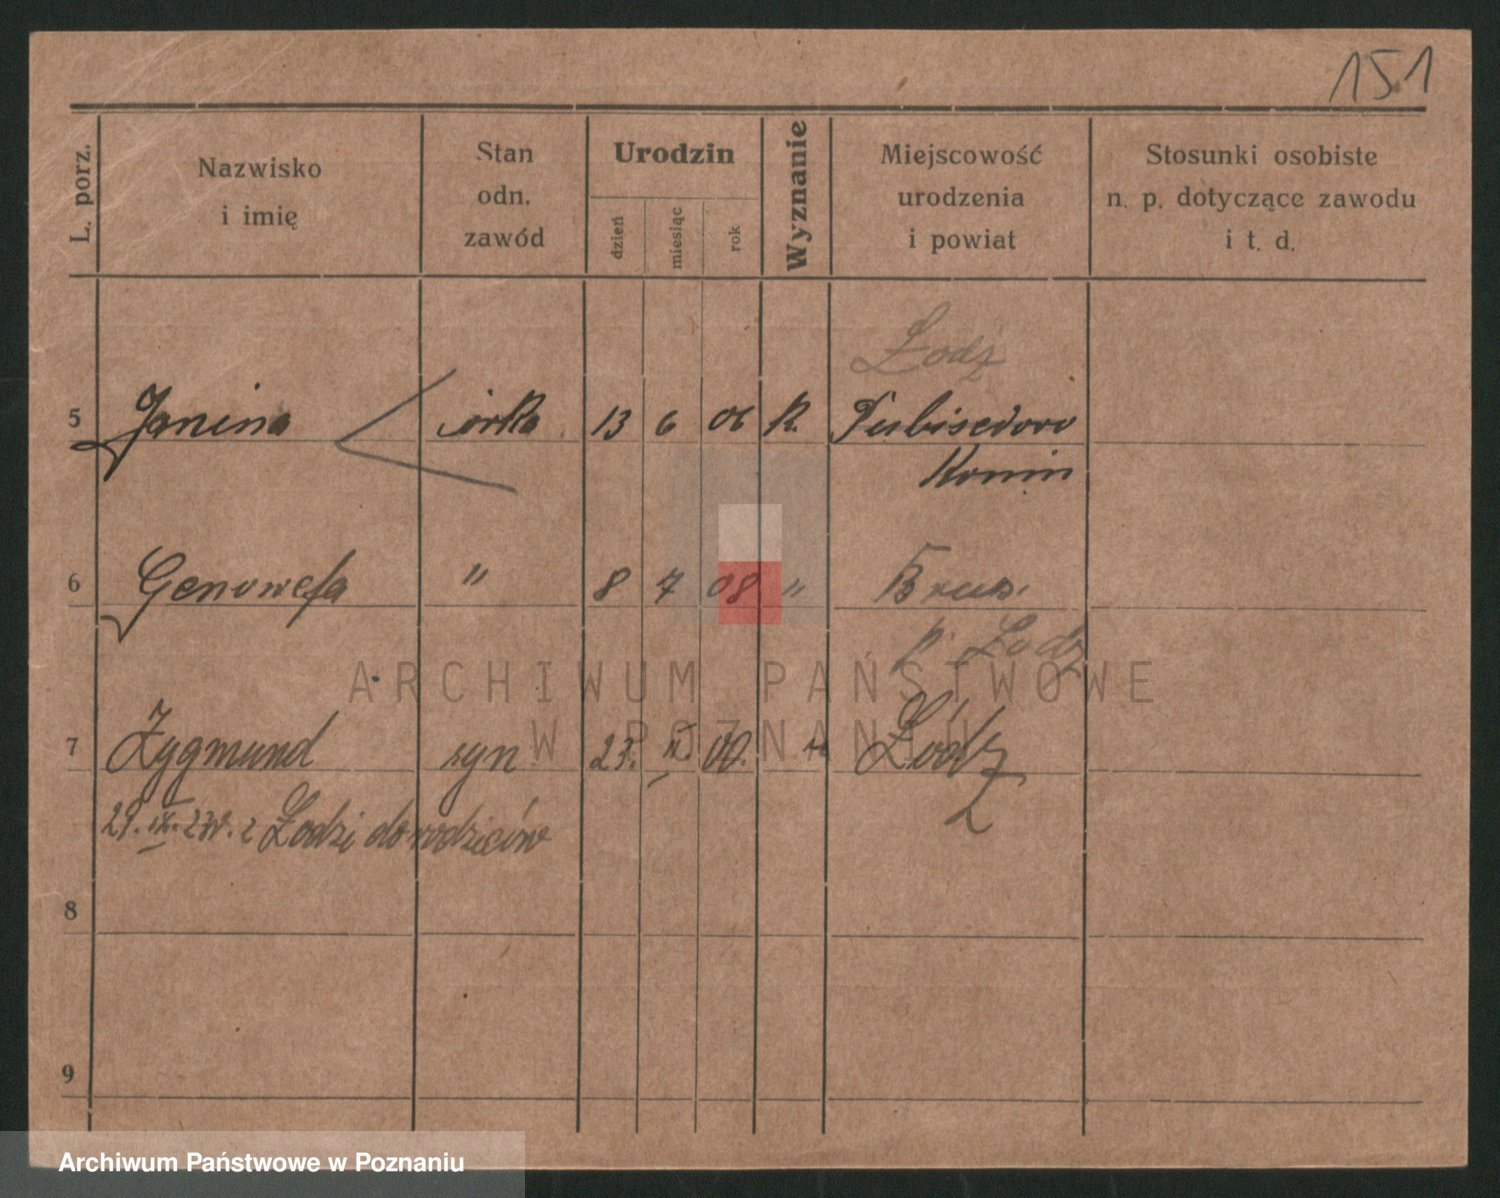 151
L. porz.
Nazwisko
i imię
Stan
odn.
zawód
Urodzin
dzień
miesiąc
rok
Wyznanie
Miejscowość
urodzenia
i powiat
Stosunki osobiste
n. p. dotyczące zawodu
i t. d.
Łodź
5 Janina córka 13 6 06 R.
Konin
6 Genowefa " 8 7 08 " Brus.
p. Łodz
ARCHIWUM PAŃSTWOWE
W POZNANIU
7 Zygmund syn 23. 00. Łódz
z Łodzi do rodziców
8
9
Archiwum Państwowe w Poznaniu